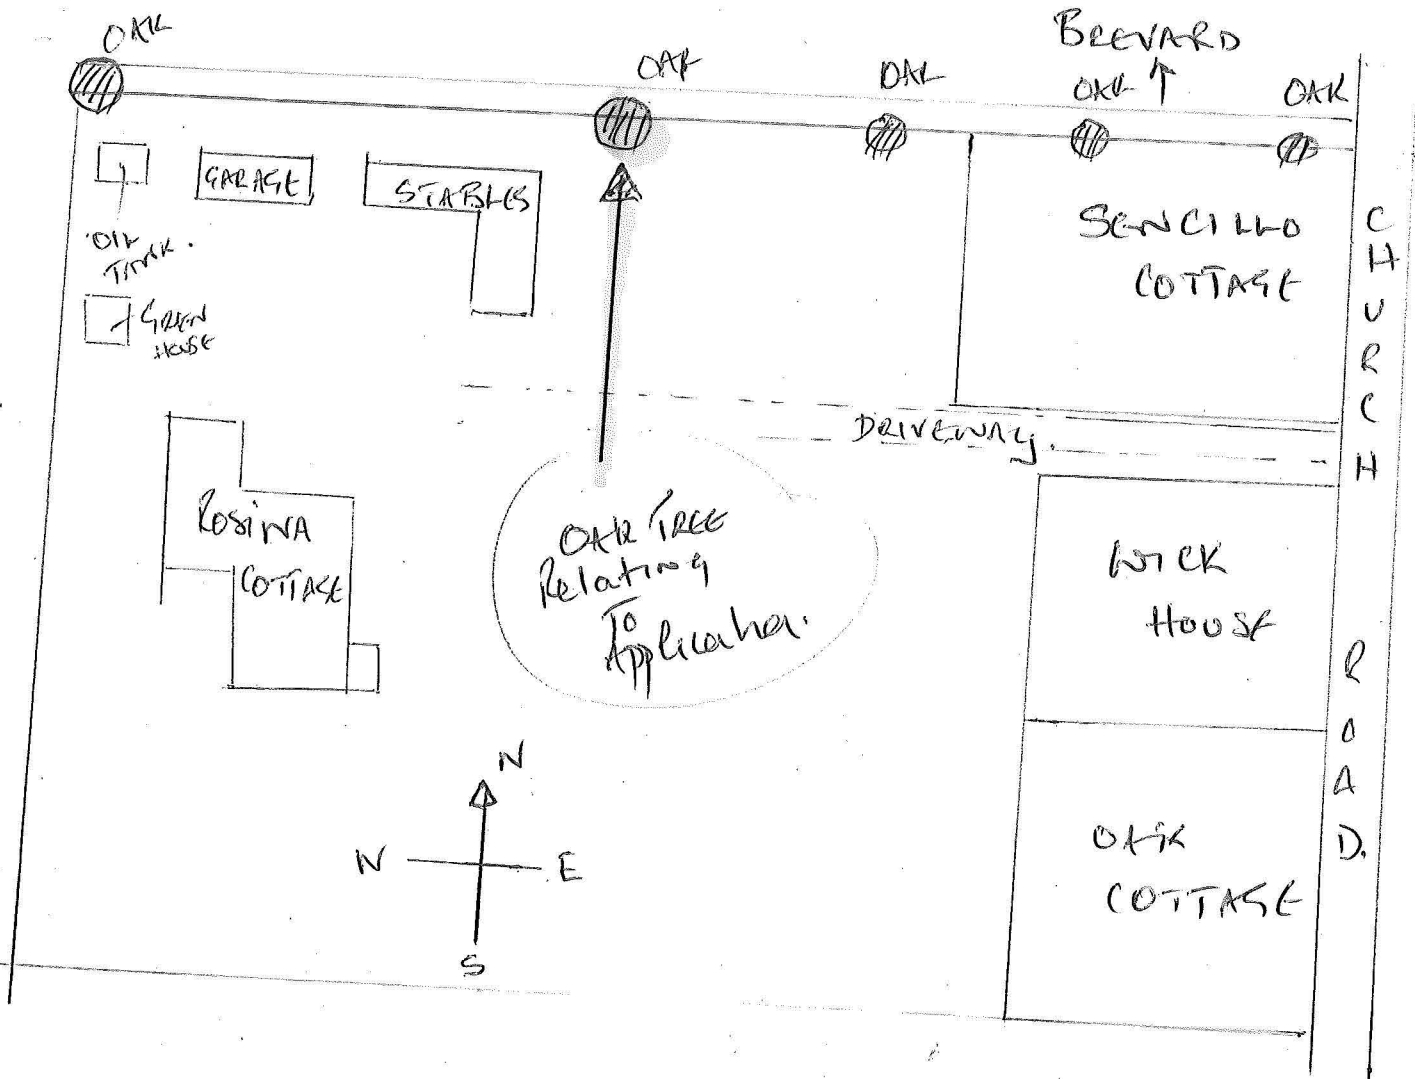 OAK
OAK
OAK
BREVARD
OAK
OAK
GARAGE
STABLES
OIL
TANK.
GREEN
HOUSE
SENCILLO
COTTAGE
CHURCH ROAD.
DRIVEWAY.
ROSINA
COTTAGE
OAK TREE
Relating
To
Application.
WICK
HOUSE
OAK
COTTAGE
N
N
E
S